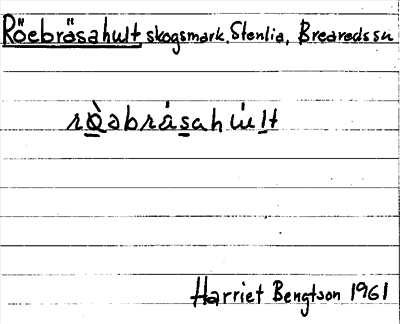 Röebråsahult skogsmark, Stenlia, Breareds sn
rò̱əbrȧs̱ahu̇ḻt
Harriet Bengtson 1961